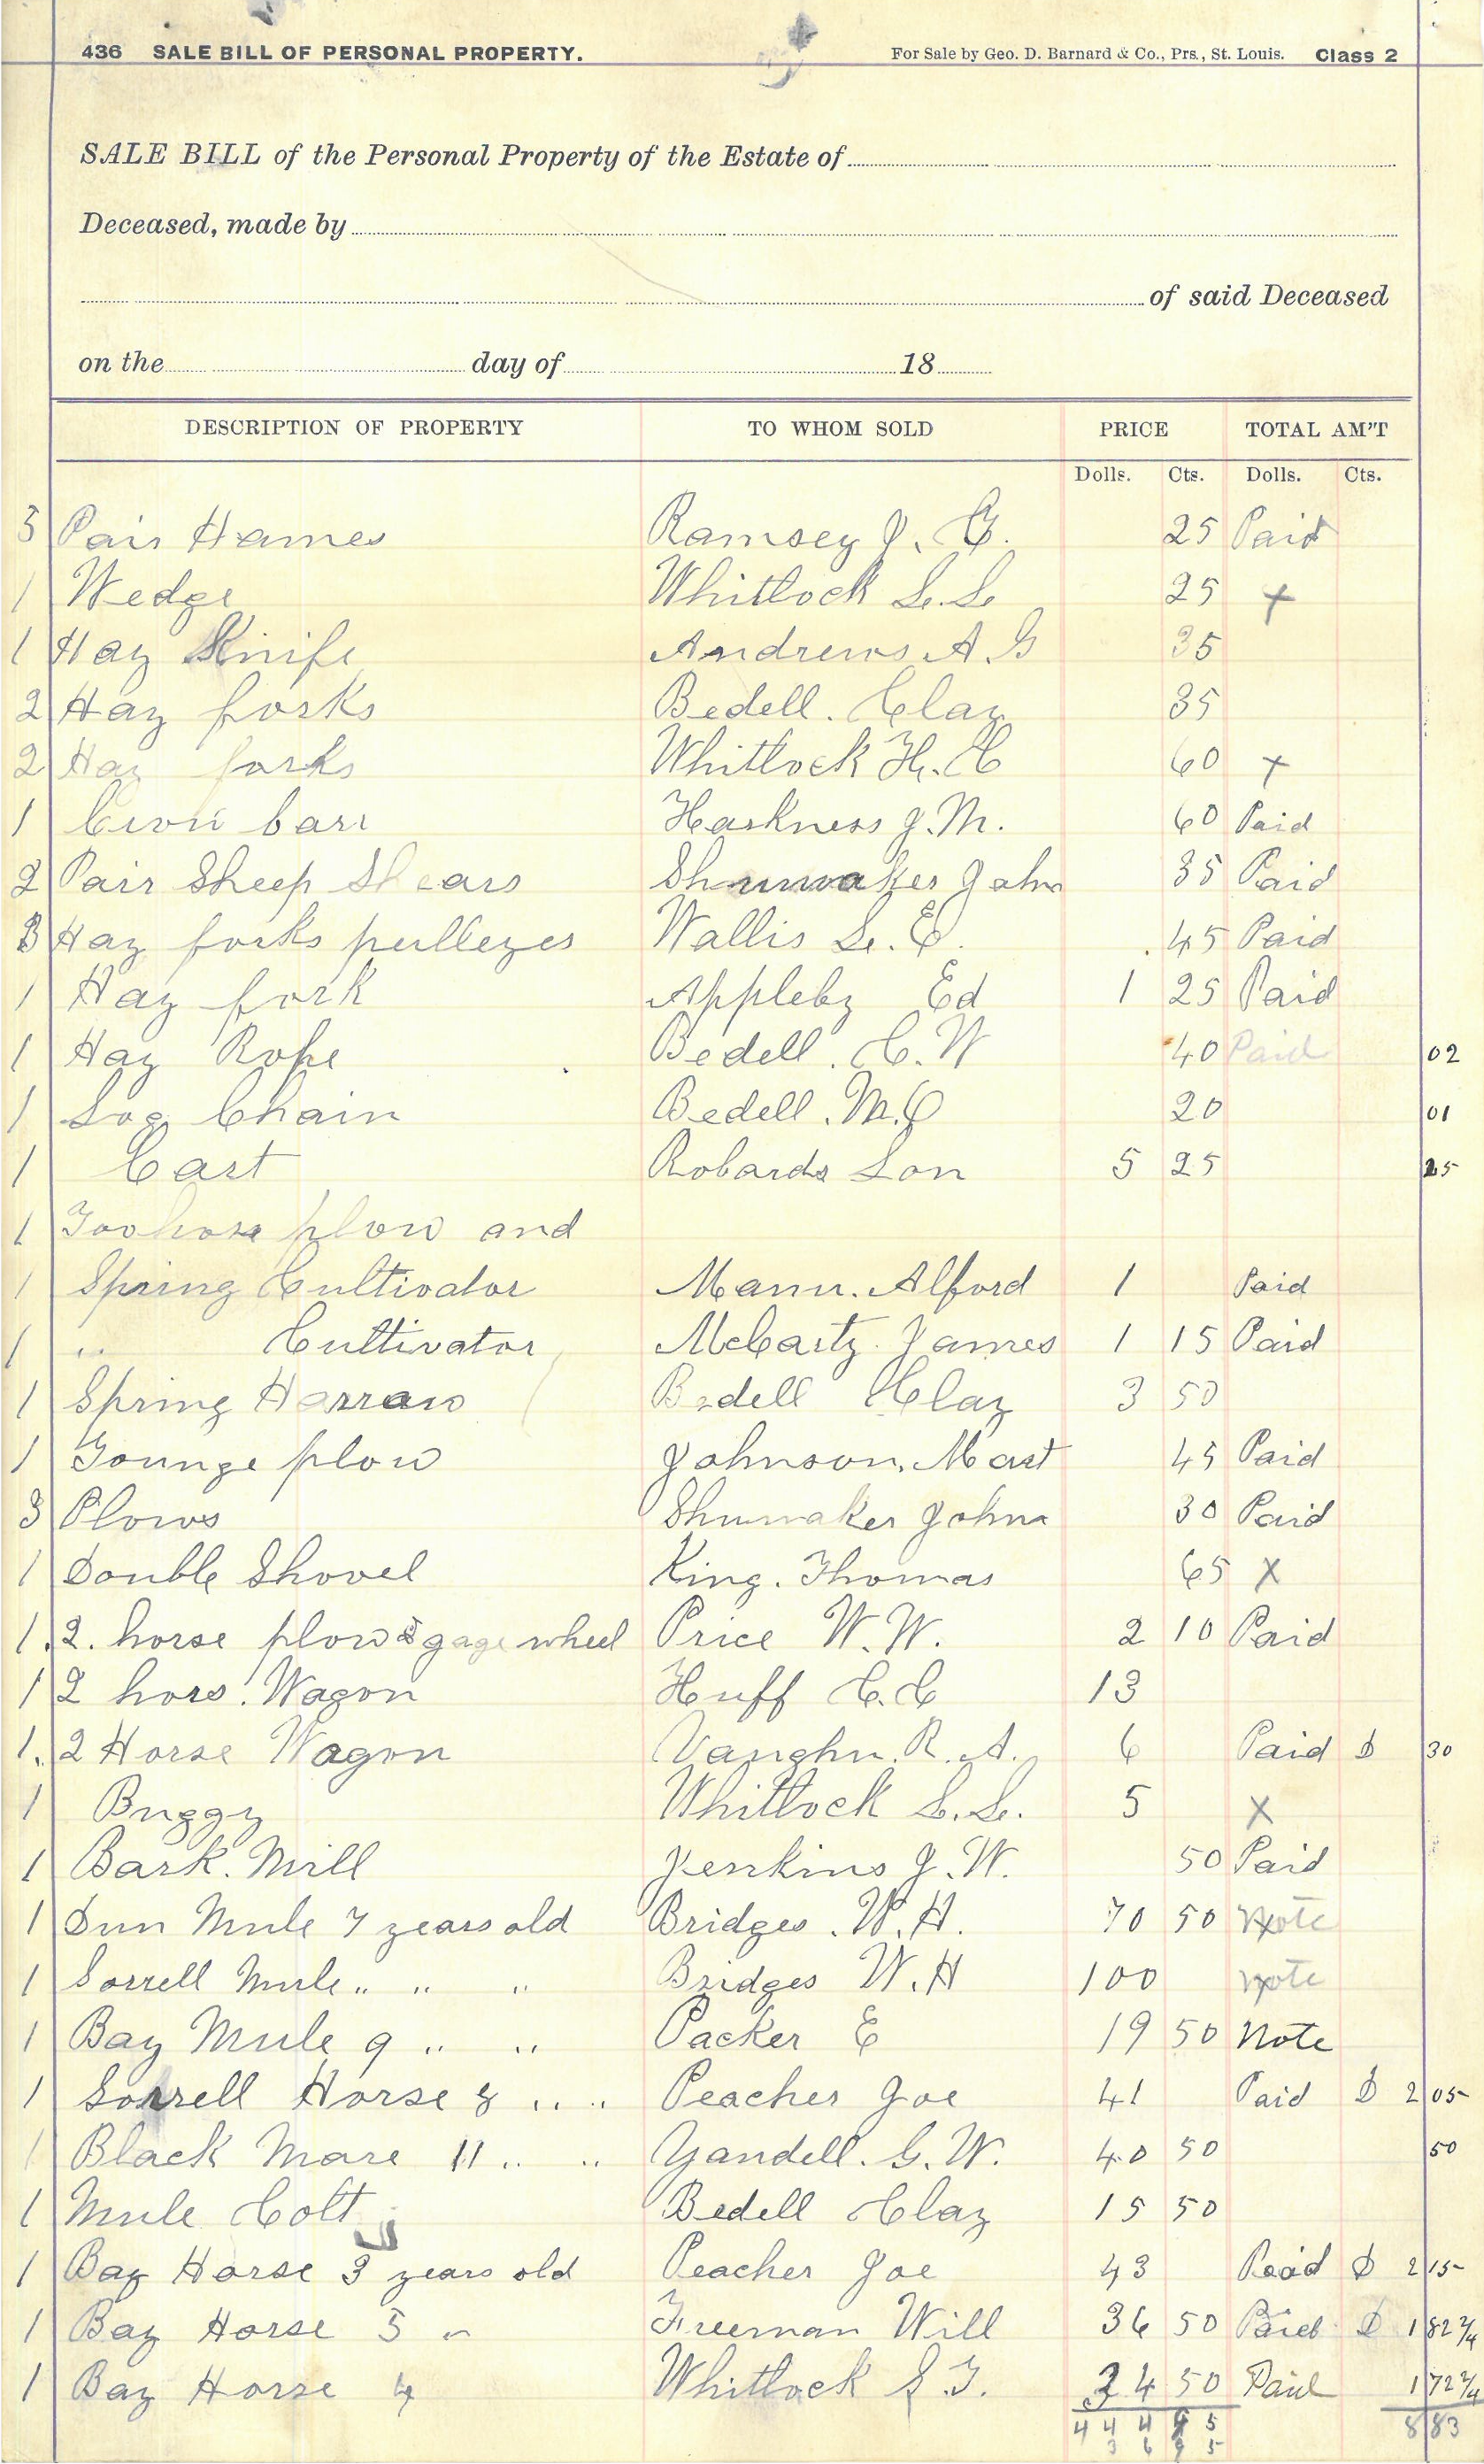 436 SALE BILL OF PERSONAL PROPERTY. For Sale by Geo. D. Barnard & Co., Prs., St. Louis. Class 2
SALE BILL of the Personal Property of the Estate of
Deceased, made by
of said Deceased
on the day of 18
DESCRIPTION OF PROPERTY TO WHOM SOLD PRICE TOTAL AM'T
Dolls. Cts. Dolls. Cts.
3 Pair Hames Ramsey J. G. 25 Paid
1 Wedge Whitlock L. L. 25 x
1 Hay Knife Andrews A. G 35
2 Hay forks Bedell. Clay 35
2 Hay forks Whitlock H. C 60 x
1 Crow barr Harkness J. M. 60 Paid
2 Pair Sheep Shears Shumaker John 35 Paid
3 Hay forks pulleyes Wallis L. E. 45 Paid
1 Hay fork Appleby Ed 1 25 Paid
1 Hay Rope Bedell. C. W 40 Paid 02
1 Log Chain Bedell. M. C 20 01
1 Cart Robards Lon 5 25 25
1 Toohorse plow and
1 Spring Cultivator Mann. Alford 1 Paid
1 " Cultivator McCarty. James 1 15 Paid
1 Spring Harrow Bedell Clay 3 50
1 Tounge plow Johnson. Mart 45 Paid
3 Plows Shumaker John 30 Paid
1 Double Shovel King. Thomas 65 X
1. 2. horse plow & gage wheel Price W. W. 2 10 Paid
1 2 hors. Wagon Huff C. C 13
1. 2 Horse Wagon Vaughn. R. A. 6 Paid $ 30
1 Buggy Whitlock L. L. 5 X
1 Bark. Mill Jenkins J. W. 50 Paid
1 Dun Mule 7 years old Bridges. W. H. 70 50 Note
1 Sorrell Mule " " " Bridges W. H 100 note
1 Bay Mule 9 " " Packer E 19 50 Note
1 Sorrell Horse 8 " " Peacher Joe 41 Paid $ 2 05
1 Black Mare 11 " " Yandell. G. W. 40 50 50
1 Mule Colt Bedell Clay 15 50
1 Bay Horse 3 years old Peacher Joe 43 Paid $ 2 15
1 Bay Horse 5 " Freeman Will 36 50 Paid $ 1 82 2/4
1 Bay Horse 4 Whitlock S. T. 34 50 Paid 1 72 2/4
8 83